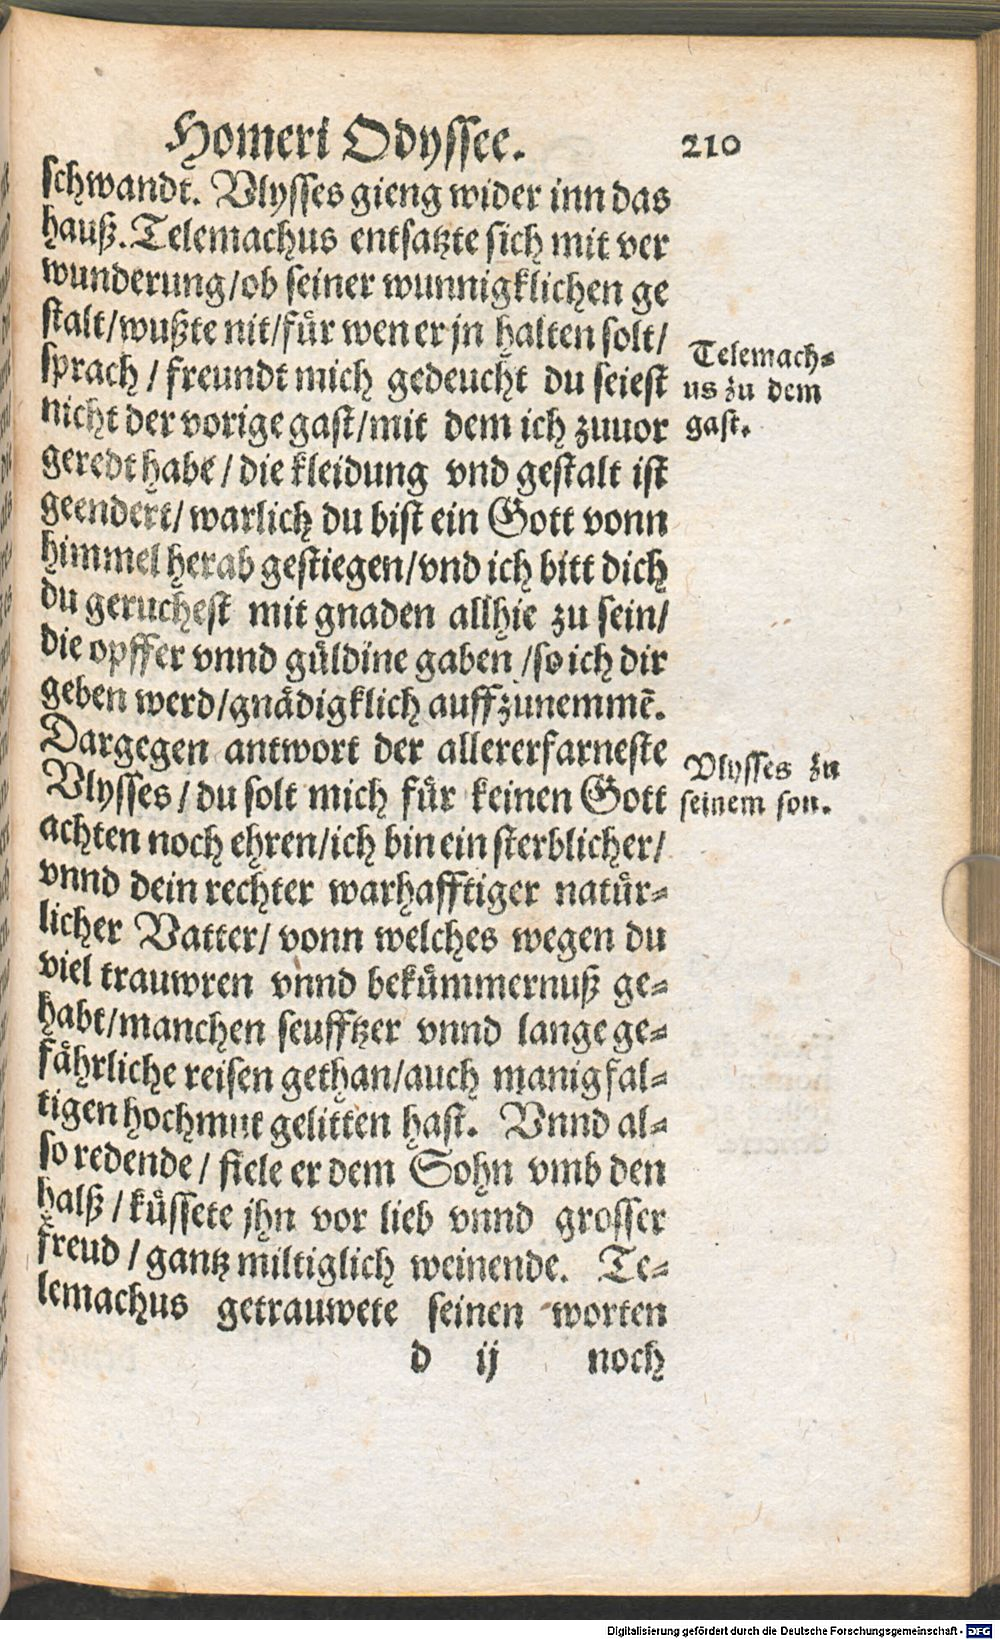 Homeri Odyssee. 210
schwandt. Vlysses gieng wider inn das
hauß. Telemachus entsatzte sich mit ver
wunderung/ob seiner wunnigklichen ge
stalt/wußte nit/fuͤr wen er jn halten solt/
sprach / freundt mich gedeucht du seiest
nicht der vorige gast/mit dem ich zuuor
geredt habe / die kleidung vnd gestalt ist
geendert/ warlich du bist ein Gott vonn
himmel herab gestiegen/vnd ich bitt dich
du geruchest mit gnaden allhie zu sein/
die opffer vnnd guͤldine gaben /so ich dir
geben werd/gnaͤdigklich auffzunemmē.
Dargegen antwort der allererfarneste
Vlysses / du solt mich fuͤr keinen Gott
achten noch ehren/ich bin ein sterblicher/
vnnd dein rechter warhafftiger natuͤr-
licher Vatter/ vonn welches wegen du
viel trauwren vnnd bekuͤmmernuß ge-
habt/manchen seufftzer vnnd lange ge-
faͤhrliche reisen gethan/auch manigfal-
tigen hochmut gelitten hast. Vnnd al-
so redende / fiele er dem Sohn vmb den
halß / kuͤssete jhn vor lieb vnnd grosser
freud / gantz miltiglich weinende. Te-
lemachus getrauwete seinen worten
d ij noch
Telemach-
us zu dem
gast.
Vlysses zu
seinem son.
Digitalisierung gefördert durch die Deutsche Forschungsgemeinschaft - DFG